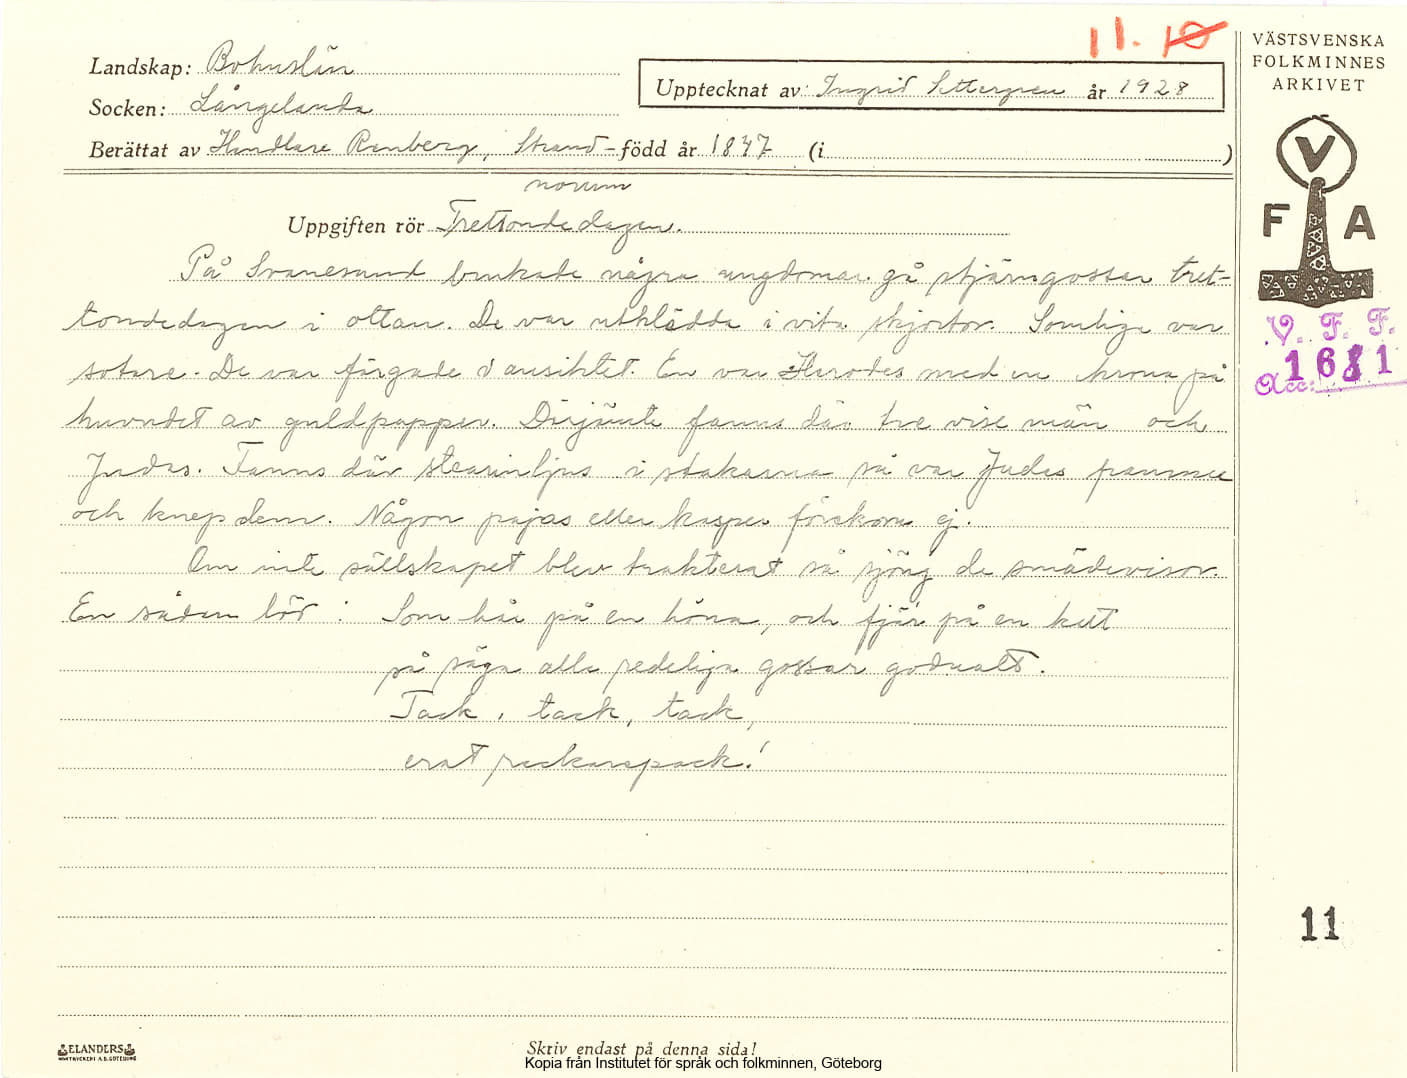 11. 10
VÄSTSVENSKA
FOLKMINNES
ARKIVET
Landskap: Bohuslän
Upptecknat av: Ingrid Settergren år 1928
Socken: Långelanda
Berättat av Handlare Renberg, Strand- född år 1847 (i )
norum
Uppgiften rör Trettondedagen.
V
F A
På Svanesund brukade några ungdomar gå stjärngossar tret-
tondedagen i ottan. De var utklädda i vita skjortor. Somliga var
sotare. De var färgade i ansiktet. En var Herodes med en krona på
huvudet av guldpapper. Dirjämte fanns där tre vise män och
Judas. Fanns där stearinljus i stakarna så var Judas framme
och knep dem. Någon pajas eller kasper förekom ej.
Om inte sällskapet blev trakterat så sjöng de smädevisor.
En sådan löd: Som hår på en höna, och fjär på en katt
så säga alla redeliga gossar godnatt.
Tack, tack, tack,
erat rackarepack!
V. F. F.
Acc: 1681
11
ELANDERS
Skriv endast på denna sida!
Kopia från Institutet för språk och folkminnen, Göteborg